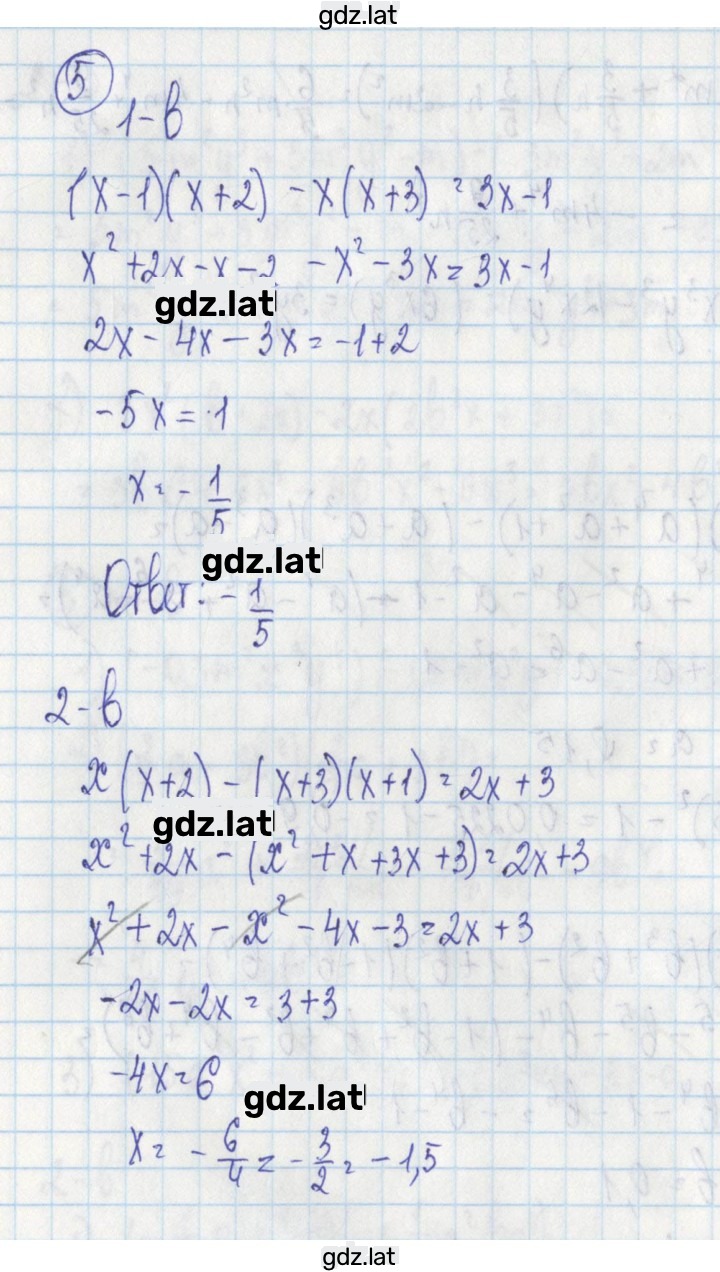 gdz.lat
5
1-в
(x-1)(x+2) - x(x+3) = 3x-1
x² + 2x - x - 2 - x² - 3x = 3x - 1
gdz.lat
2x - 4x - 3x = -1+2
-5x = 1
x = - 1/5
gdz.lat
Ответ: - 1/5
2-в
x(x+2) - (x+3)(x+1) = 2x+3
gdz.lat
x² + 2x - (x² + x + 3x + 3) = 2x+3
x² + 2x - x² - 4x - 3 = 2x + 3
-2x - 2x = 3+3
-4x = 6
gdz.lat
x = - 6/4 = - 3/2 = - 1,5
gdz.lat